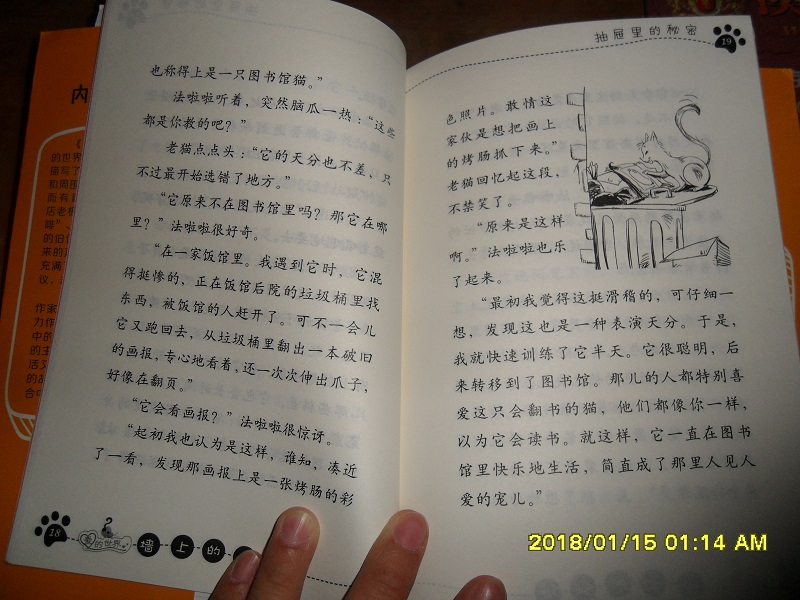 也称得上是一只图书馆猫。”
法啦啦听着，突然脑瓜一热：“这些
都是你教的吧？”
老猫点点头：“它的天分也不差，只
不过最开始选错了地方。”
“它原来不在图书馆里吗？那它在哪
里？”法啦啦很好奇。
“在一家饭馆里。我遇到它时，它混
得挺惨的，正在饭馆后院的垃圾桶里找
东西，被饭馆的人赶开了。可不一会儿
它又跑回去，从垃圾桶里翻出一本破旧
的画报，专心地看着，还一次次伸出爪子，
好像在翻页。”
“它会看画报？”法啦啦很惊讶。
“起初我也认为是这样，谁知，凑近
了一看，发现那画报上是一张烤肠的彩
18
的世界
墙上的
抽屉里的秘密
19
色照片。敢情这
家伙是想把画上
的烤肠抓下来。”
老猫回忆起这段，
不禁笑了。
“原来是这样
啊。”法啦啦也乐
了起来。
“最初我觉得这挺滑稽的，可仔细一
想，发现这也是一种表演天分。于是，
我就快速训练了它半天。它很聪明，后
来转移到了图书馆。那儿的人都特别喜
爱这只会翻书的猫，他们都像你一样，
以为它会读书。就这样，它一直在图书
馆里快乐地生活，简直成了那里人见人
爱的宠儿。”
2018/01/15 01:14 AM
内
的世界
描写了
和周围
而有
店老板
的伯
来的
充满
议，
作家
为作
中的
的主
活又
的故
合